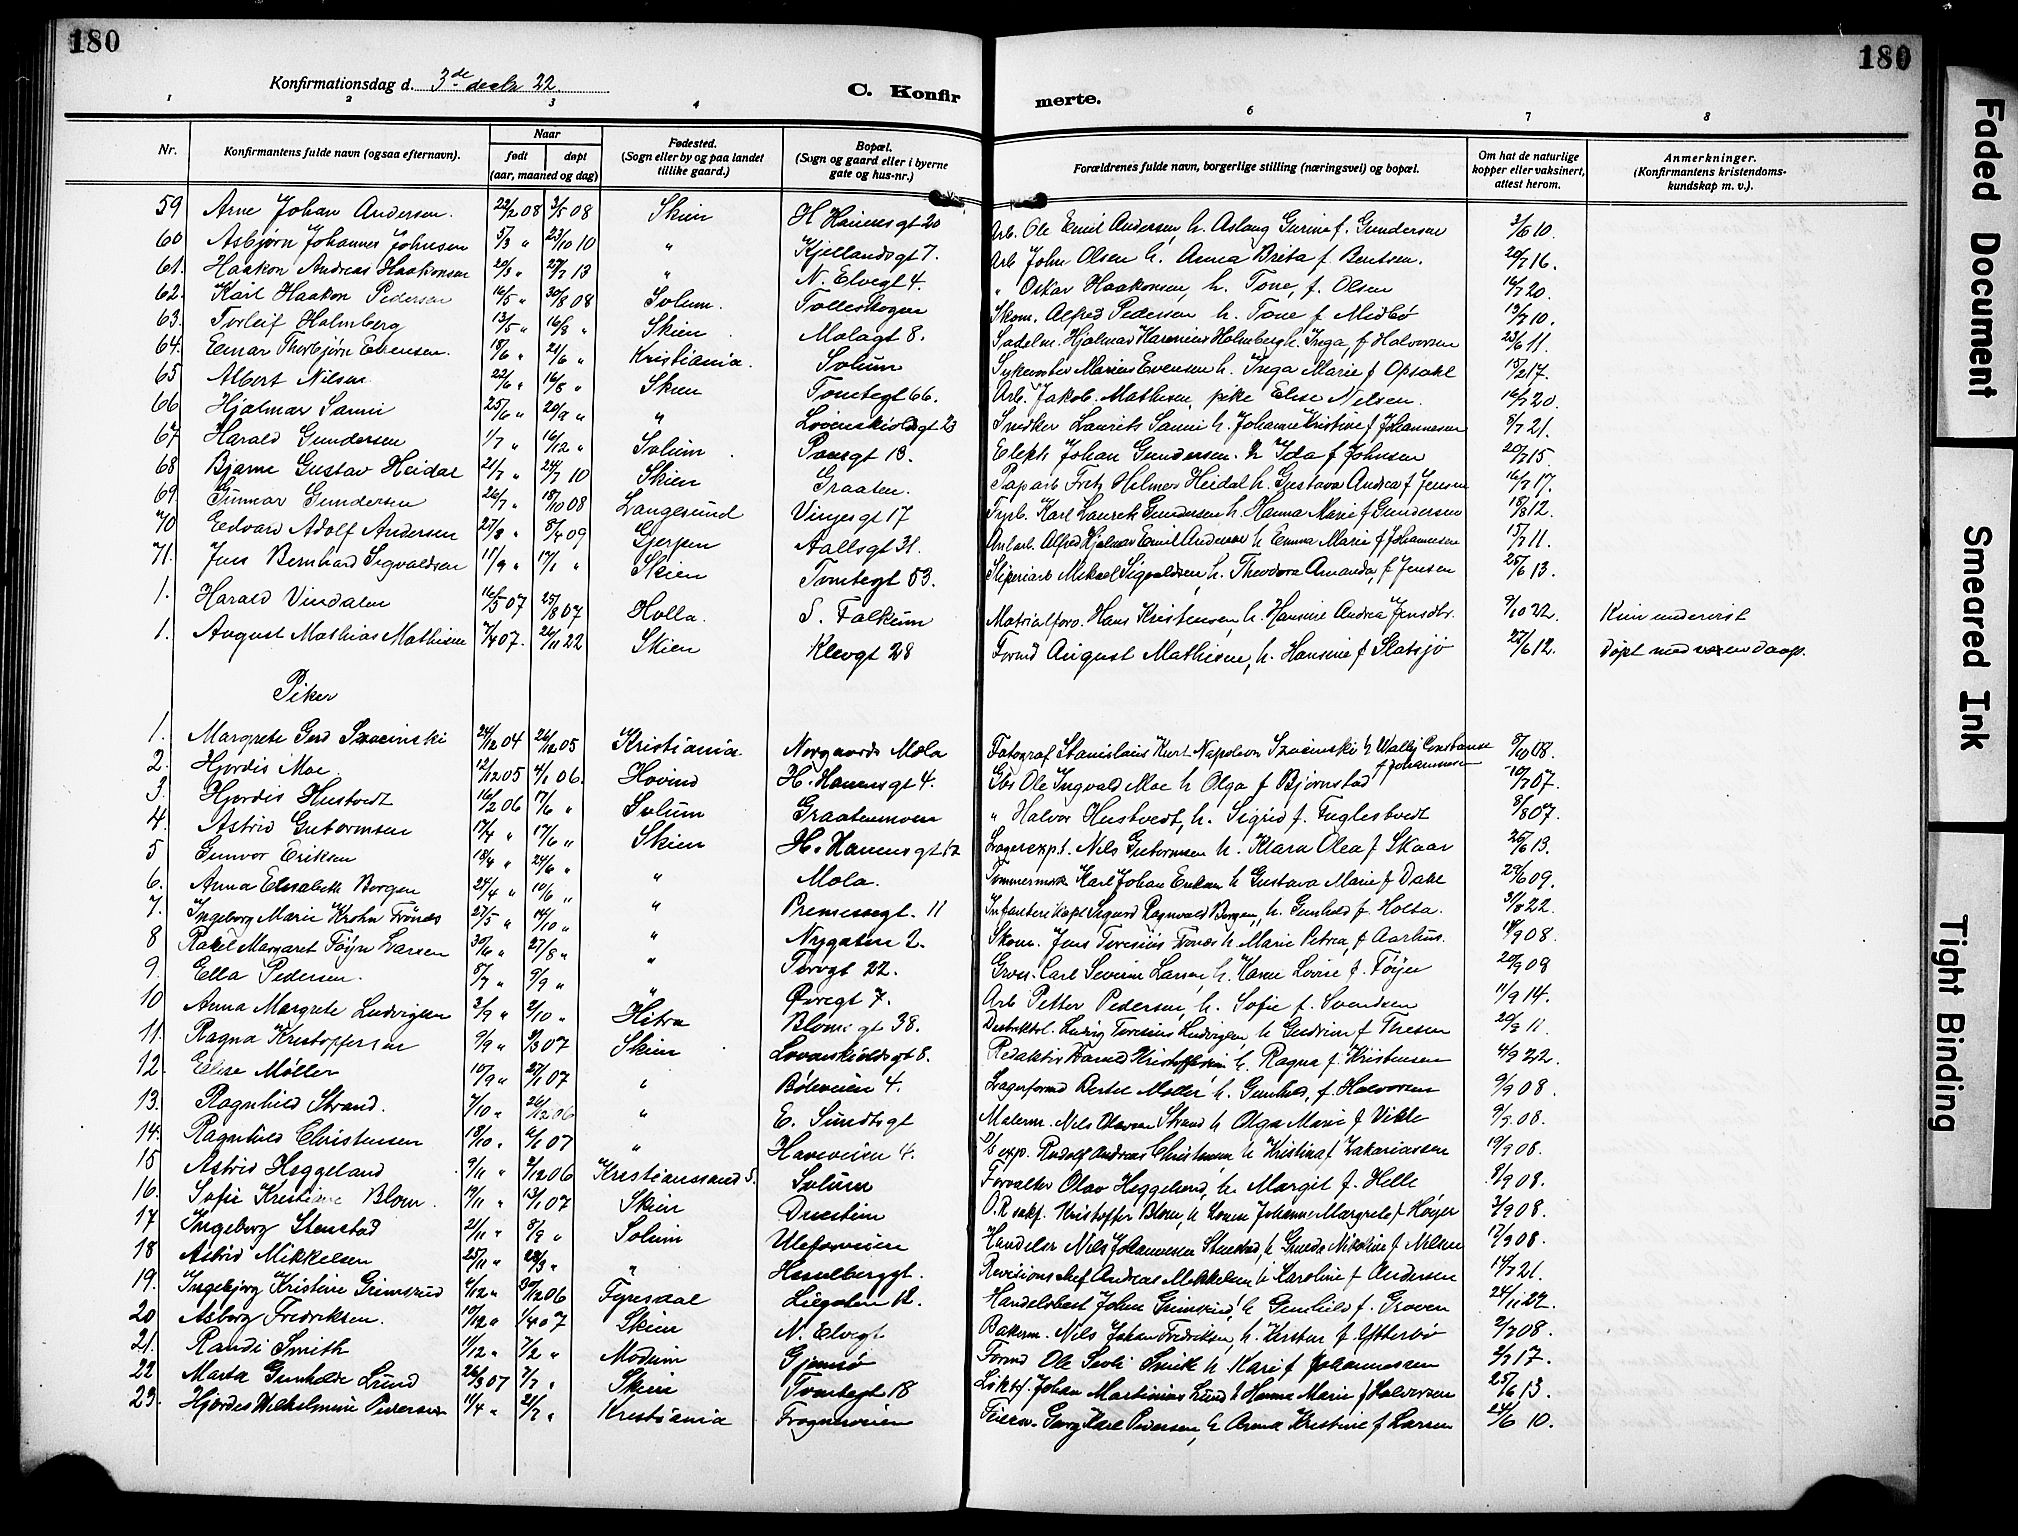 180
180
Konfirmationsdag d. 3de decbr 22.
C. Konfirmerte.
1 2 3 4 6 7 8
Nr.
Konfirmantens fulde navn (ogsaa efternavn).
Naar
født
døpt
(aar, maaned og dag)
Fødested.
(Sogn eller by og paa landet
tillike gaard.)
Bopæl.
(Sogn og gaard eller i byerne
gate og hus-nr.)
Forældrenes fulde navn, borgerlige stilling (næringsvei) og bopæl.
Om hat de naturlige
kopper eller vaksinert,
attest herom.
Anmerkninger.
(Konfirmantens kristendoms-
kundskap m. v.).
59 Arne Johan Andersen. 22/2 08 3/5 08 Skien H Hauensgt 20 Arb. Ole Emil Andersen, h. Aslaug Gurine f. Gundersen 3/6 10.
60. Asbjørn Johannes Johnsen 5/3 " 23/10 10 " Kjellandsgt 7. Arb John Olsen h. Anna Brita f. Bentsen. 20/7 16.
61. Haakon Andreas Haakonsen 20/3 " 27/7 13 " N. Elvegt 4. " Oskar Haakonsen, h. Tone, f. Olsen 16/7 20.
62. Karl Haakon Pedersen 16/5 " 30/8 08 Solum. Tolleskogen Skom. Alfred Pedersen h. Tone f Midbø 13/7 10.
63. Torleif Holmberg 13/5 " 16/8 " Skien Molagt 8. Sadelm. Hjalmar Karenius Holmberg h. Inga, f Halvorsen 23/6 11.
64. Einar Thorbjørn Evensen. 18/6 " 21/6 " Kristiania. Solum Marius Evensen h. Inga Marie f Opsahl 15/2 17.
65 Albert Nilsen 22/6 " 16/8 " Skien Tomtegt 66. Arb. Jakob Mathisen, pike Elise Nilsen. 16/7 20
66 Hjalmar Sanni 25/6 " 20/9 " " Løvenskioldsgt 23 Snedker Laurits Sanni h. Johanne Kristine f Johannesen 8/7 21.
67 Harald Gundersen 1/7 " 16/12 " Solum. Pausgt 13. Elekt. Johan Gundersen. h Ida f Johnsen 20/7 15
68 Bjarne Gustav Heidal 21/7 " 24/7 10 Skien Graaten. Paparb Fritz Hilmer Heidal h. Gustava Andrea f Jensen 16/7 17.
69. Gunnar Gundersen 26/7 " 18/10 08 Langesund Vinjesgt 17 Karl Laurits Gundersen h. Hanna Marie f Gundersen 18/8 12.
70 Edvard Adolf Andersen 27/8 " 8/4 09 Gjerpen Aallsgt 31. Alfred Hjalmar Emil Andersen h Emma Marie f Johannesen 15/7 11.
71. Jens Bernhard Sigvaldsen 11/9 " 17/1 " Skien Tomtegt 53. Sliperiarb Mikael Sigvaldsen h. Theodora Amanda f Jensen 25/6 13.
1. Harald Vindalen 16/5 07 25/8 07 Holla. S. Falkum Hans Kristensen, h. Hansine Andrea Jensdtr. 9/10 22. Kun undervist
1. August Mathias Mathisen 7/4 07. 26/11 22 Skien Klevgt 28 Formd August Mathisen, h. Hansine f Slatsjø 27/6 12. døpt ved voxen daap.
Piker
1. Margrete Gerd Szacinski 24/12 04 26/12 05 Kristiania. Norgaards Mola Fotograf Stanislaus Kurt Napoleon Szacinski h Wally Constanse f Johannesen 8/10 08.
2. Hjørdis Moe 12/12 05 4/1 06. Hovind H. Hauensgt 4. Gbr Ole Ingvald Moe h Olga f Bjørnstad 10/7 07.
3. Hjørdis Hustvedt 16/2 06 17/6 " Solum Graatenmoen " Halvor Hustvedt, h. Sigrid f. Fuglestvedt 8/8 07.
4. Astrid Gutormsen 17/4 " 17/6 " Skien H. Hauensgt 12 Lagerexp. Nils Gutormsen h. Klara Olea f Skaar 26/6 13.
5 Gunvor Eriksen 18/4 " 24/6 " " Mola. Tømmerm Karl Johan Eriksen h Gustava Marie f Dahl 29/6 09.
6. Anna Elisabeth Borgen 24/4 " 10/6 " " Premiersgt. 11 Infanterikapt Sigurd Ragnvald Borgen, h. Gunhild f. Holta. 31/8 22.
7. Ingeborg Marie Krohn Frönæs 27/5 " 14/10 " " Nygaten 2. Skom. Jens Teresius Frönæs h Marie Petrea, f Aarhus. 18/9 08.
8 Rakel Margaret Føyn Larsen 30/6 " 27/8 " " Torvgt 22. Gros. Carl Severin Larsen h. Karen Lovise f. Føyn 20/9 08
9. Ella Pedersen. 8/7 " 9/9 " " Øvregt 7. Arb Petter Pedersen, h. Sofie f. Svendsen 11/9 14.
10 Anna Margrete Ludvigsen 3/9 " 2/10 " Hitra Bloms gt 38. Distriktsl. Ludvig Teresius Ludvigsen, h Gudrun f Thesen 20/3 11.
11. Ragna Kristoffersen 9/9 " 3/3 07 Skien Lovenskioldsgt 8. Redaktør Kristoffersen h. Ragna f. Kristensen 4/9 22.
12. Elise Møller 10/9 " 27/1 07 " Bøleveien 4. Lagerformd Bertel Møller h. Gunhild, f. Halvorsen 9/9 08.
13. Ragnhild Strand. 7/10 " 26/12 06 " E. Sundtsgt Malerm. Nils Olavsen Strand h Olga Marie f Vible 9/9 08.
14. Ragnhild Christensen 18/10 " 6/1 07 " Haveveien 4. D/s exp. Rudolf Andreas Christensen h Kristina f Zakariassen 19/9 08.
15 Astrid Heggeland 9/11 " 2/12 06 Kristianssand S. Solum Forvalter Olav Heggeland, h. Margit f. Helle 8/9 08.
16. Sofie Kristiane Blom 19/11 " 13/1 07 Skien Duestien O.R sakf. Kristoffer Blom, h Louise Johanne Margrete f Høyer 3/9 08.
17 Ingeborg Stenstad 21/11 " 8/9 " Solum Ulefosveien Handelsr Nils Johannesen Stenstad, h Gunda Nikoline f Nilsen 12/9 08.
18 Astrid Mikkelsen 25/11 " 28/3 " " Hesselberggt. Revisionschef Andreas Mikkelsen h Karoline f Andersen 14/7 21.
19. Ingebjørg Kristine Grimsrud 4/12 " 30/12 06 Fyresdal Liegaten 12. Handelsbest John Grimsrud h Gunhild f. Groven 24/11 22.
20 Asborg Fredriksen. 10/12 " 1/4 07 Skien N. Elvegt Bakerm. Nils Johan Fredriksen, h. Kirsten f. Ytterbø 2/7 08.
21. Randi Smith 11/12 " 7/2 " Modum Gjemsø Formd Ole Sevli Smith h. Kari f Johannessen 2/7 17.
22 Marta Gunhilde Lund 26/3 07 7/7 " Skien Tomtegt 18 Johan Martinius Lund h Hanna Marie f Halvorsen 25/6 13.
23. Hjørdis Wilhelmine Pedersen 11/4 " 21/7 " Kristiania Frognerveien Feierm. Georg Karl Pedersen, h Anna Kristine f Larsen 24/6 10.
Faded Document
Smeared Ink
Tight Binding